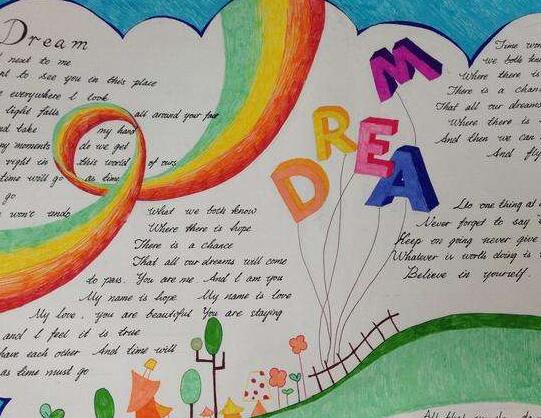 Dream
next to me
to see you in this place
everywhere I look
light falls all around your face
take my hand
my moments do we get
right in this world of ours
time will go as time
go
won't undo
What we both know
Where there is hope
There is a chance
That all our dreams will come
to pass. You are me. And I am you
My name is hope My name is love
My love, you are beautiful You are staying
and I feel it is true
have each other And time will
as time must go
DREAM
Time
we both
Where there is
There is a chan
That all our dreams
Where there is
And then we can
And fly
one thing at a
Never forget to say
Keep on going never give
Whatever is worth doing is
Believe in yourself.